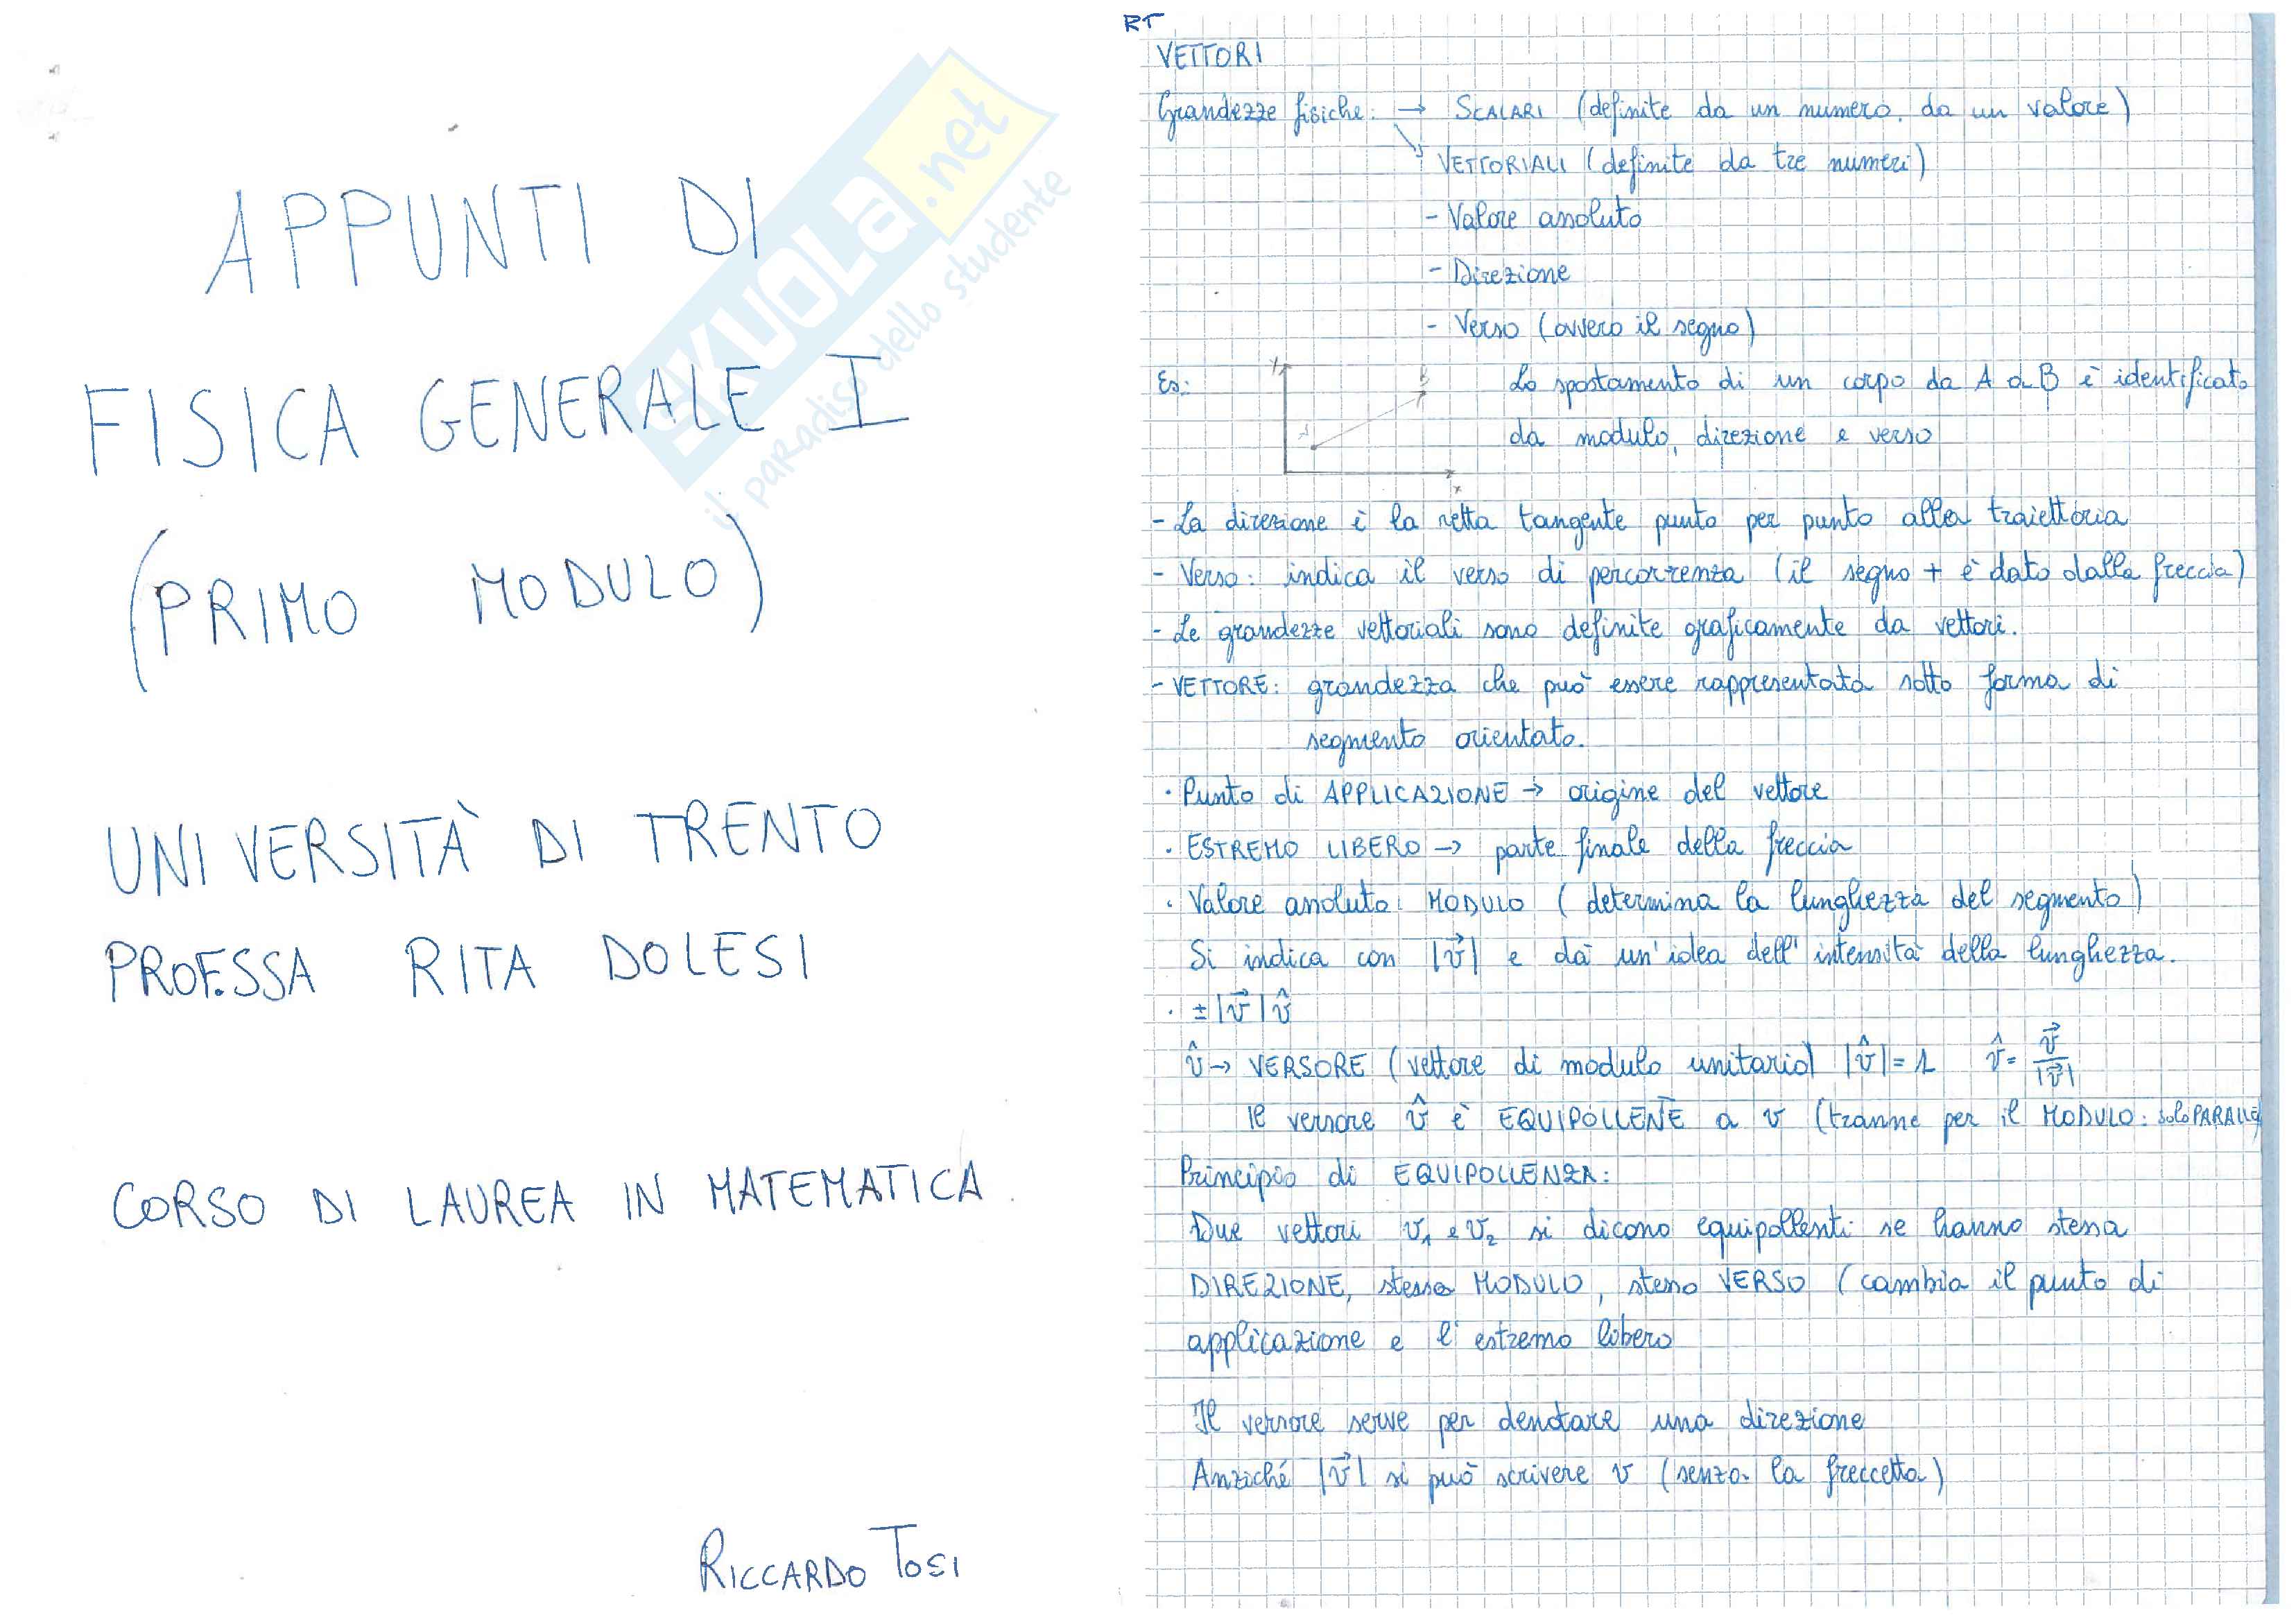 APPUNTI DI
FISICA GENERALE I
(PRIMO MODULO)
UNIVERSITÀ DI TRENTO
PROF.SSA RITA DOLESI
CORSO DI LAUREA IN MATEMATICA
RICCARDO TOSI
SKUOLA.net
il paradiso dello studente
RT
VETTORI
Grandezze fisiche: → SCALARI (definite da un numero, da un valore)
↘ VETTORIALI (definite da tre numeri)
- Valore assoluto
- Direzione
- Verso (ovvero il segno)
Es:
y
A
B
x
Lo spostamento di un corpo da A a B è identificato
da modulo, direzione e verso
- La direzione è la retta tangente punto per punto alla traiettoria
- Verso: indica il verso di percorrenza (il segno + è dato dalla freccia)
- Le grandezze vettoriali sono definite graficamente da vettori.
- VETTORE: grandezza che può essere rappresentata sotto forma di
segmento orientato.
· Punto di APPLICAZIONE → origine del vettore
· ESTREMO LIBERO → parte finale della freccia
· Valore assoluto: MODULO (determina la lunghezza del segmento)
Si indica con |v⃗| e dà un'idea dell'intensità della lunghezza.
· ±|v⃗|v̂
v̂ → VERSORE (vettore di modulo unitario) |v̂|=1 v̂= v⃗/|v⃗|
Il versore v̂ è EQUIPOLLENTE a v (tranne per il MODULO: solo PARALLELO
Principio di EQUIPOLLENZA:
Due vettori v₁ e v₂ si dicono equipollenti se hanno stessa
DIREZIONE, stesso MODULO, stesso VERSO (cambia il punto di
applicazione e l'estremo libero
Il versore serve per denotare una direzione
Anziché |v⃗| si può scrivere v (senza la freccetta)